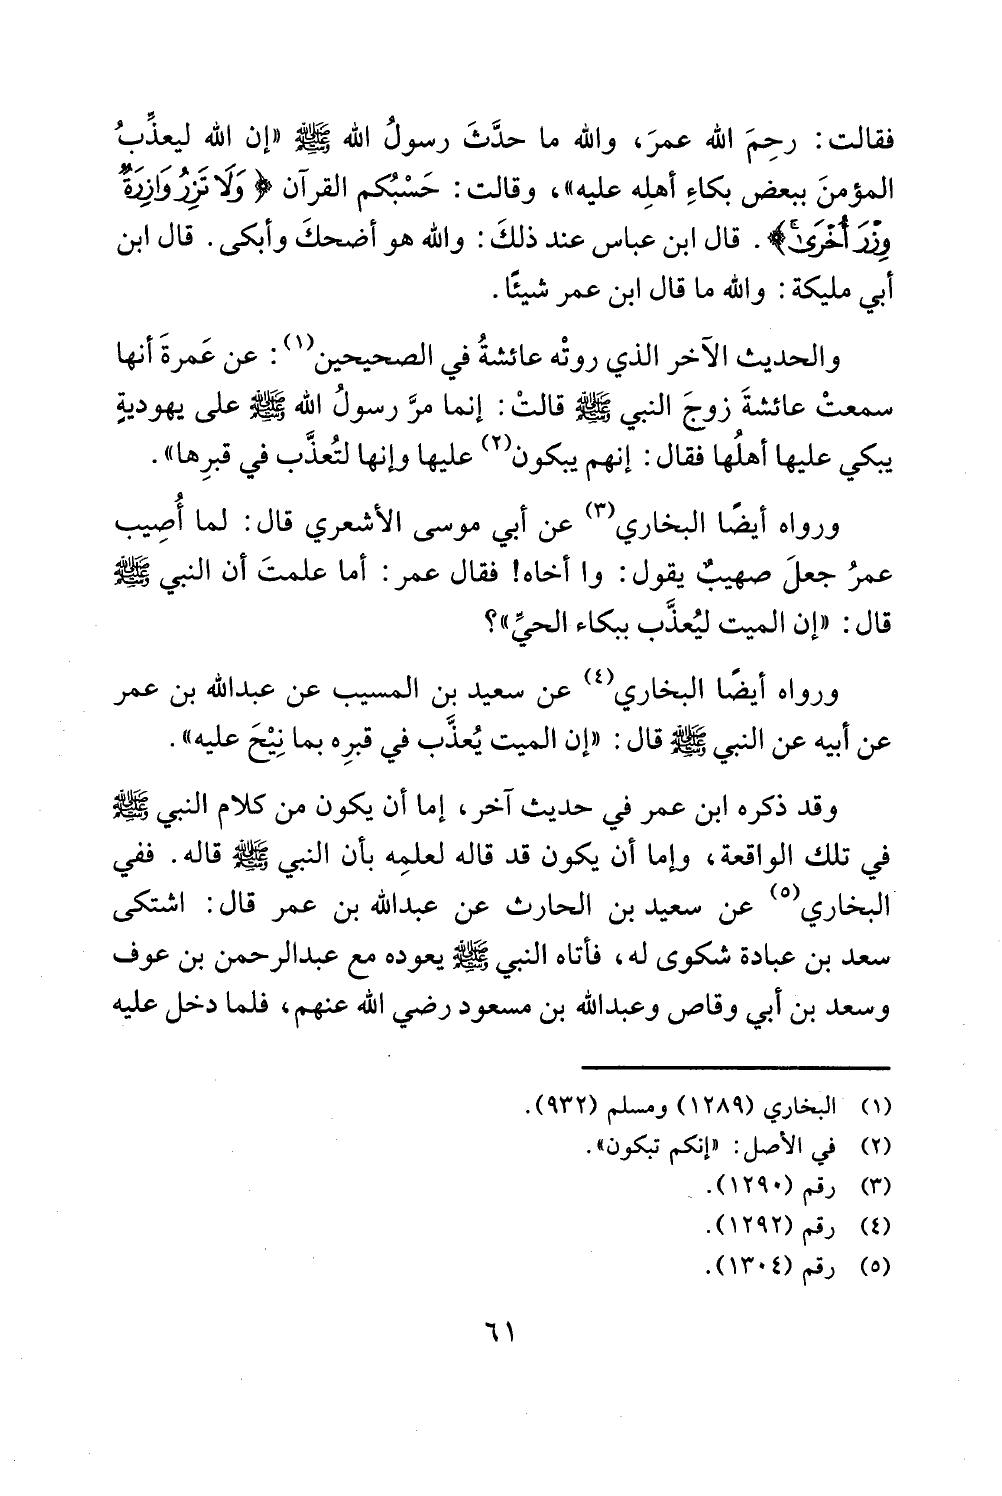 فقالت: رحِمَ الله عمرَ، والله ما حدَّثَ رسولُ الله ﷺ «إن الله ليعذِّبُ
المؤمنَ ببعض بكاءِ أهلِه عليه»، وقالت: حَسْبُكم القرآن ﴿وَلَا تَزِرُ وَازِرَةٌ
وِزْرَ أُخْرَىٰ﴾. قال ابن عباس عند ذلكَ: والله هو أضحكَ وأبكى. قال ابن
أبي مليكة: والله ما قال ابن عمر شيئًا.
والحديث الآخر الذي روتْه عائشةُ في الصحيحين(١): عن عَمرةَ أنها
سمعتْ عائشةَ زوجَ النبي ﷺ قالتْ: إنما مرَّ رسولُ الله ﷺ على يهوديةٍ
يبكي عليها أهلُها فقال: إنهم يبكون(٢) عليها وإنها لتُعذَّب في قبرِها».
ورواه أيضًا البخاري(٣) عن أبي موسى الأشعري قال: لما أُصِيب
عمرُ جعلَ صهيبٌ يقول: وا أخاه! فقال عمر: أما علمتَ أن النبي ﷺ
قال: «إن الميت ليُعذَّب ببكاء الحيِّ»؟
ورواه أيضًا البخاري(٤) عن سعيد بن المسيب عن عبدالله بن عمر
عن أبيه عن النبي ﷺ قال: «إن الميت يُعذَّب في قبرِه بما نِيْحَ عليه».
وقد ذكره ابن عمر في حديث آخر، إما أن يكون من كلام النبي ﷺ
في تلك الواقعة، وإما أن يكون قد قاله لعلمِه بأن النبي ﷺ قاله. ففي
البخاري(٥) عن سعيد بن الحارث عن عبدالله بن عمر قال: اشتكى
سعد بن عبادة شكوى له، فأتاه النبي ﷺ يعوده مع عبدالرحمن بن عوف
وسعد بن أبي وقاص وعبدالله بن مسعود رضي الله عنهم، فلما دخل عليه
(١) البخاري (١٢٨٩) ومسلم (٩٣٢).
(٢) في الأصل: «إنكم تبكون».
(٣) رقم (١٢٩٠).
(٤) رقم (١٢٩٢).
(٥) رقم (١٣٠٤).
٦١